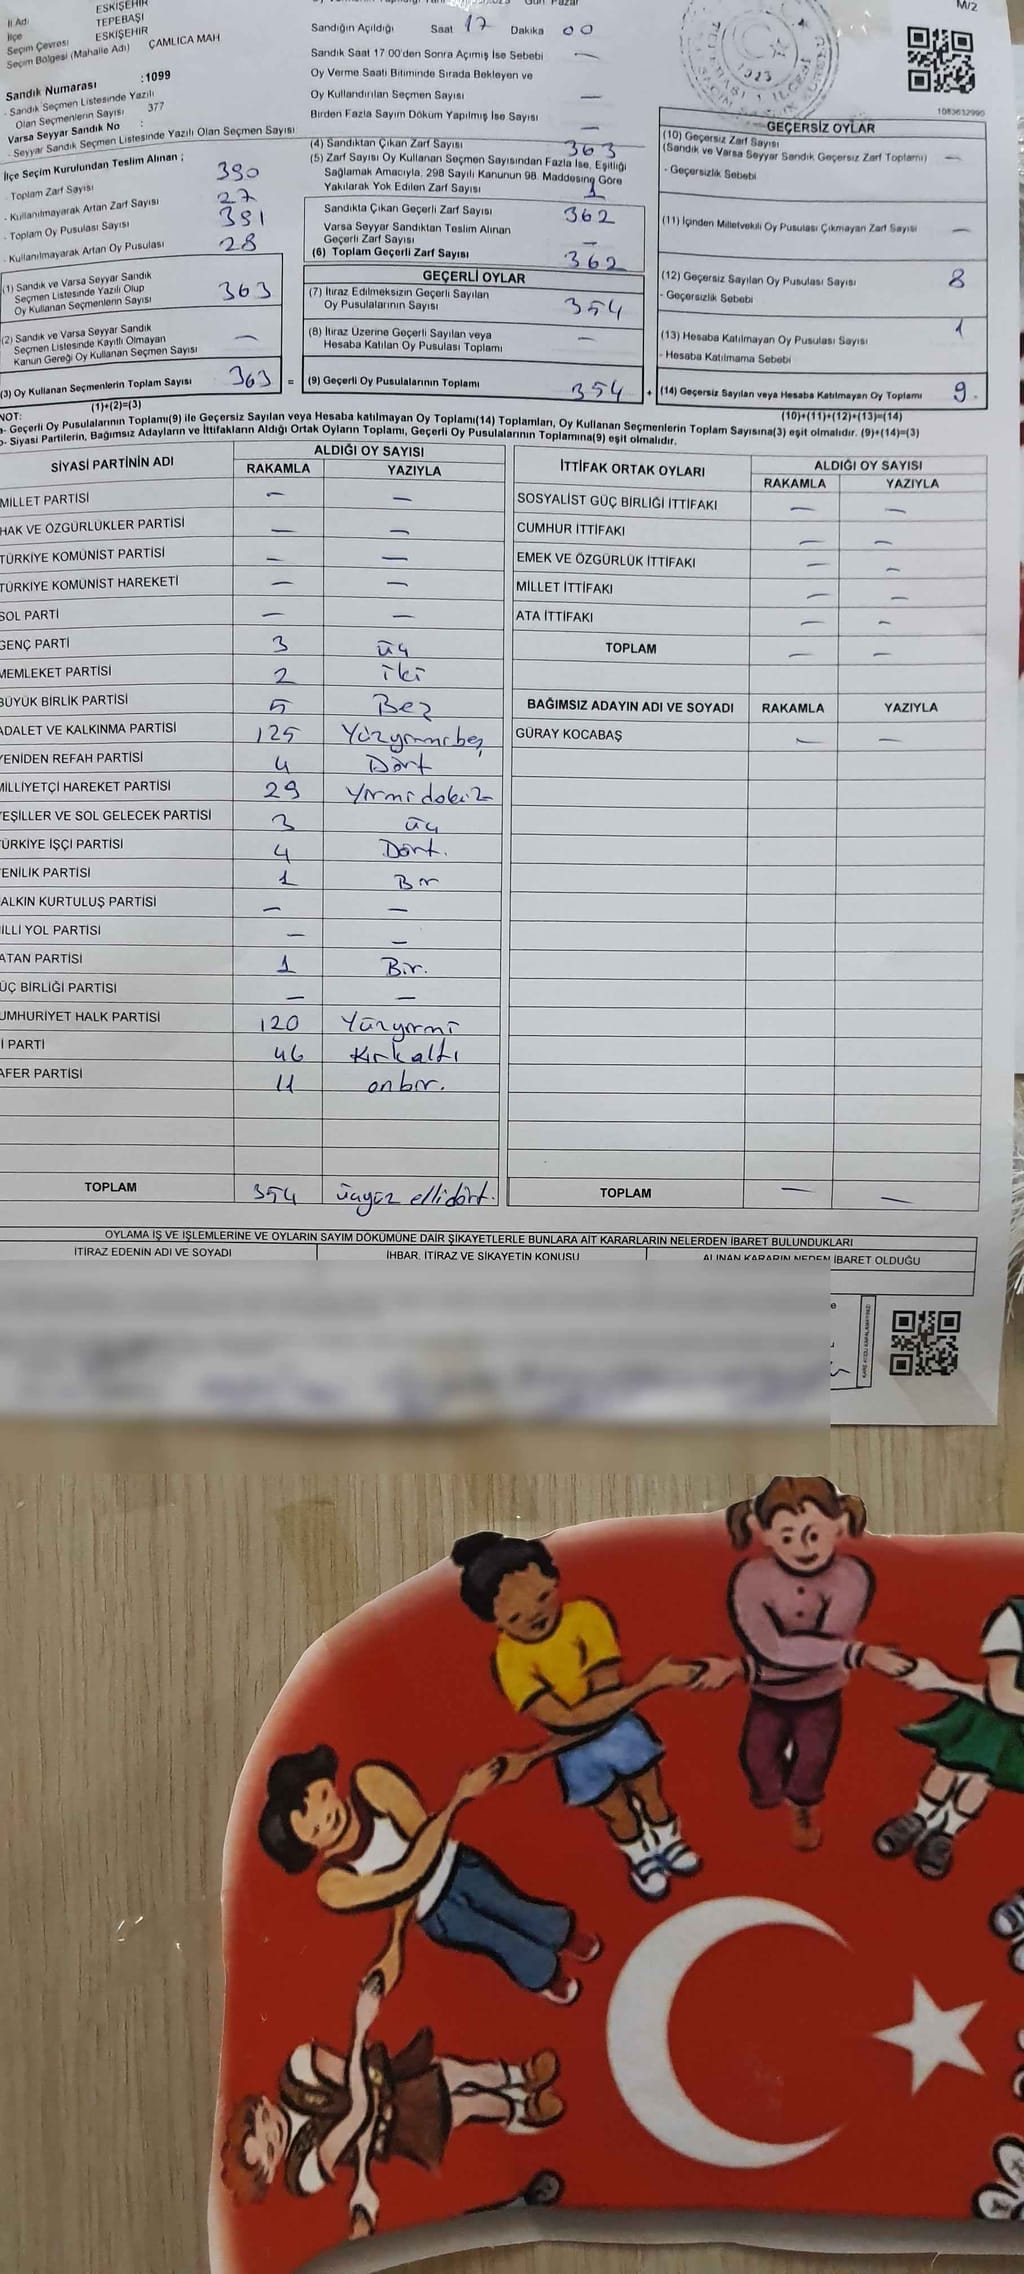 ESKİŞEHİR
İl Adı
İlçe TEPEBAŞI
Seçim Çevresi ESKİŞEHİR
Seçim Bölgesi (Mahalle Adı) ÇAMLICA MAH.
Sandık Numarası :1099
- Sandık Seçmen Listesinde Yazılı
Olan Seçmenlerin Sayısı 377
Varsa Seyyar Sandık No :
- Seyyar Sandık Seçmen Listesinde Yazılı Olan Seçmen Sayısı
İlçe Seçim Kurulundan Teslim Alınan ;
- Toplam Zarf Sayısı 390
- Kullanılmayarak Artan Zarf Sayısı 27
- Toplam Oy Pusulası Sayısı 391
- Kullanılmayarak Artan Oy Pusulası 28
(1) Sandık ve Varsa Seyyar Sandık
Seçmen Listesinde Yazılı Olup
Oy Kullanan Seçmenlerin Sayısı 363
(2) Sandık ve Varsa Seyyar Sandık
Seçmen Listesinde Kayıtlı Olmayan
Kanun Gereği Oy Kullanan Seçmen Sayısı —
(3) Oy Kullanan Seçmenlerin Toplam Sayısı 363 =
(1)+(2)=(3)
Gün Pazar
Sandığın Açıldığı Saat 17 Dakika 00
Sandık Saat 17.00'den Sonra Açımış İse Sebebi —
Oy Verme Saati Bitiminde Sırada Bekleyen ve
Oy Kullandırılan Seçmen Sayısı —
Birden Fazla Sayım Döküm Yapılmış İse Sayısı —
(4) Sandıktan Çıkan Zarf Sayısı 363
(5) Zarf Sayısı Oy Kullanan Seçmen Sayısından Fazla İse, Eşitliği
Sağlamak Amacıyla, 298 Sayılı Kanunun 98. Maddesine Göre
Yakılarak Yok Edilen Zarf Sayısı 1
Sandıkta Çıkan Geçerli Zarf Sayısı 362
Varsa Seyyar Sandıktan Teslim Alınan
Geçerli Zarf Sayısı —
(6) Toplam Geçerli Zarf Sayısı 362
GEÇERLİ OYLAR
(7) İtiraz Edilmeksizin Geçerli Sayılan
Oy Pusulalarının Sayısı 354
(8) İtiraz Üzerine Geçerli Sayılan veya
Hesaba Katılan Oy Pusulası Toplamı —
(9) Geçerli Oy Pusulalarının Toplamı 354 +
M/2
1923
1083632990
GEÇERSİZ OYLAR
(10) Geçersiz Zarf Sayısı
(Sandık ve Varsa Seyyar Sandık Geçersiz Zarf Toplamı) —
- Geçersizlik Sebebi
(11) İçinden Milletvekili Oy Pusulası Çıkmayan Zarf Sayısı —
(12) Geçersiz Sayılan Oy Pusulası Sayısı 8
- Geçersizlik Sebebi
(13) Hesaba Katılmayan Oy Pusulası Sayısı 1
- Hesaba Katılmama Sebebi
(14) Geçersiz Sayılan veya Hesaba Katılmayan Oy Toplamı 9.
(10)+(11)+(12)+(13)=(14)
NOT:
a- Geçerli Oy Pusulalarının Toplamı(9) ile Geçersiz Sayılan veya Hesaba katılmayan Oy Toplamı(14) Toplamları, Oy Kullanan Seçmenlerin Toplam Sayısına(3) eşit olmalıdır. (9)+(14)=(3)
b- Siyasi Partilerin, Bağımsız Adayların ve İttifakların Aldığı Ortak Oyların Toplamı, Geçerli Oy Pusulalarının Toplamına(9) eşit olmalıdır.
SİYASİ PARTİNİN ADI ALDIĞI OY SAYISI
RAKAMLA YAZIYLA
MİLLET PARTİSİ — —
HAK VE ÖZGÜRLÜKLER PARTİSİ — —
TÜRKİYE KOMÜNİST PARTİSİ — —
TÜRKİYE KOMÜNİST HAREKETİ — —
SOL PARTİ — —
GENÇ PARTİ 3 üç
MEMLEKET PARTİSİ 2 iki
BÜYÜK BİRLİK PARTİSİ 5 Beş
ADALET VE KALKINMA PARTİSİ 125 Yüzyirmibeş
YENİDEN REFAH PARTİSİ 4 Dört
MİLLİYETÇİ HAREKET PARTİSİ 29 Yirmidokuz
YEŞİLLER VE SOL GELECEK PARTİSİ 3 üç
TÜRKİYE İŞÇİ PARTİSİ 4 Dört.
ENİLİK PARTİSİ 1 Bir
ALKIN KURTULUŞ PARTİSİ — —
İLLİ YOL PARTİSİ — —
ATAN PARTİSİ 1 Bir.
ÜÇ BİRLİĞİ PARTİSİ — —
UMHURİYET HALK PARTİSİ 120 Yüzyirmi
İ PARTİ 46 Kırkaltı
AFER PARTİSİ 11 onbir.
TOPLAM 354 üçyüz ellidört.
İTTİFAK ORTAK OYLARI ALDIĞI OY SAYISI
RAKAMLA YAZIYLA
SOSYALİST GÜÇ BİRLİĞİ İTTİFAKI — —
CUMHUR İTTİFAKI — —
EMEK VE ÖZGÜRLÜK İTTİFAKI — —
MİLLET İTTİFAKI — —
ATA İTTİFAKI — —
TOPLAM — —
BAĞIMSIZ ADAYIN ADI VE SOYADI RAKAMLA YAZIYLA
GÜRAY KOCABAŞ — —
TOPLAM — —
OYLAMA İŞ VE İŞLEMLERİNE VE OYLARIN SAYIM DÖKÜMÜNE DAİR ŞİKAYETLERLE BUNLARA AİT KARARLARIN NELERDEN İBARET BULUNDUKLARI
İTİRAZ EDENİN ADI VE SOYADI İHBAR, İTİRAZ VE ŞİKAYETİN KONUSU ALINAN KARARIN NEDEN İBARET OLDUĞU